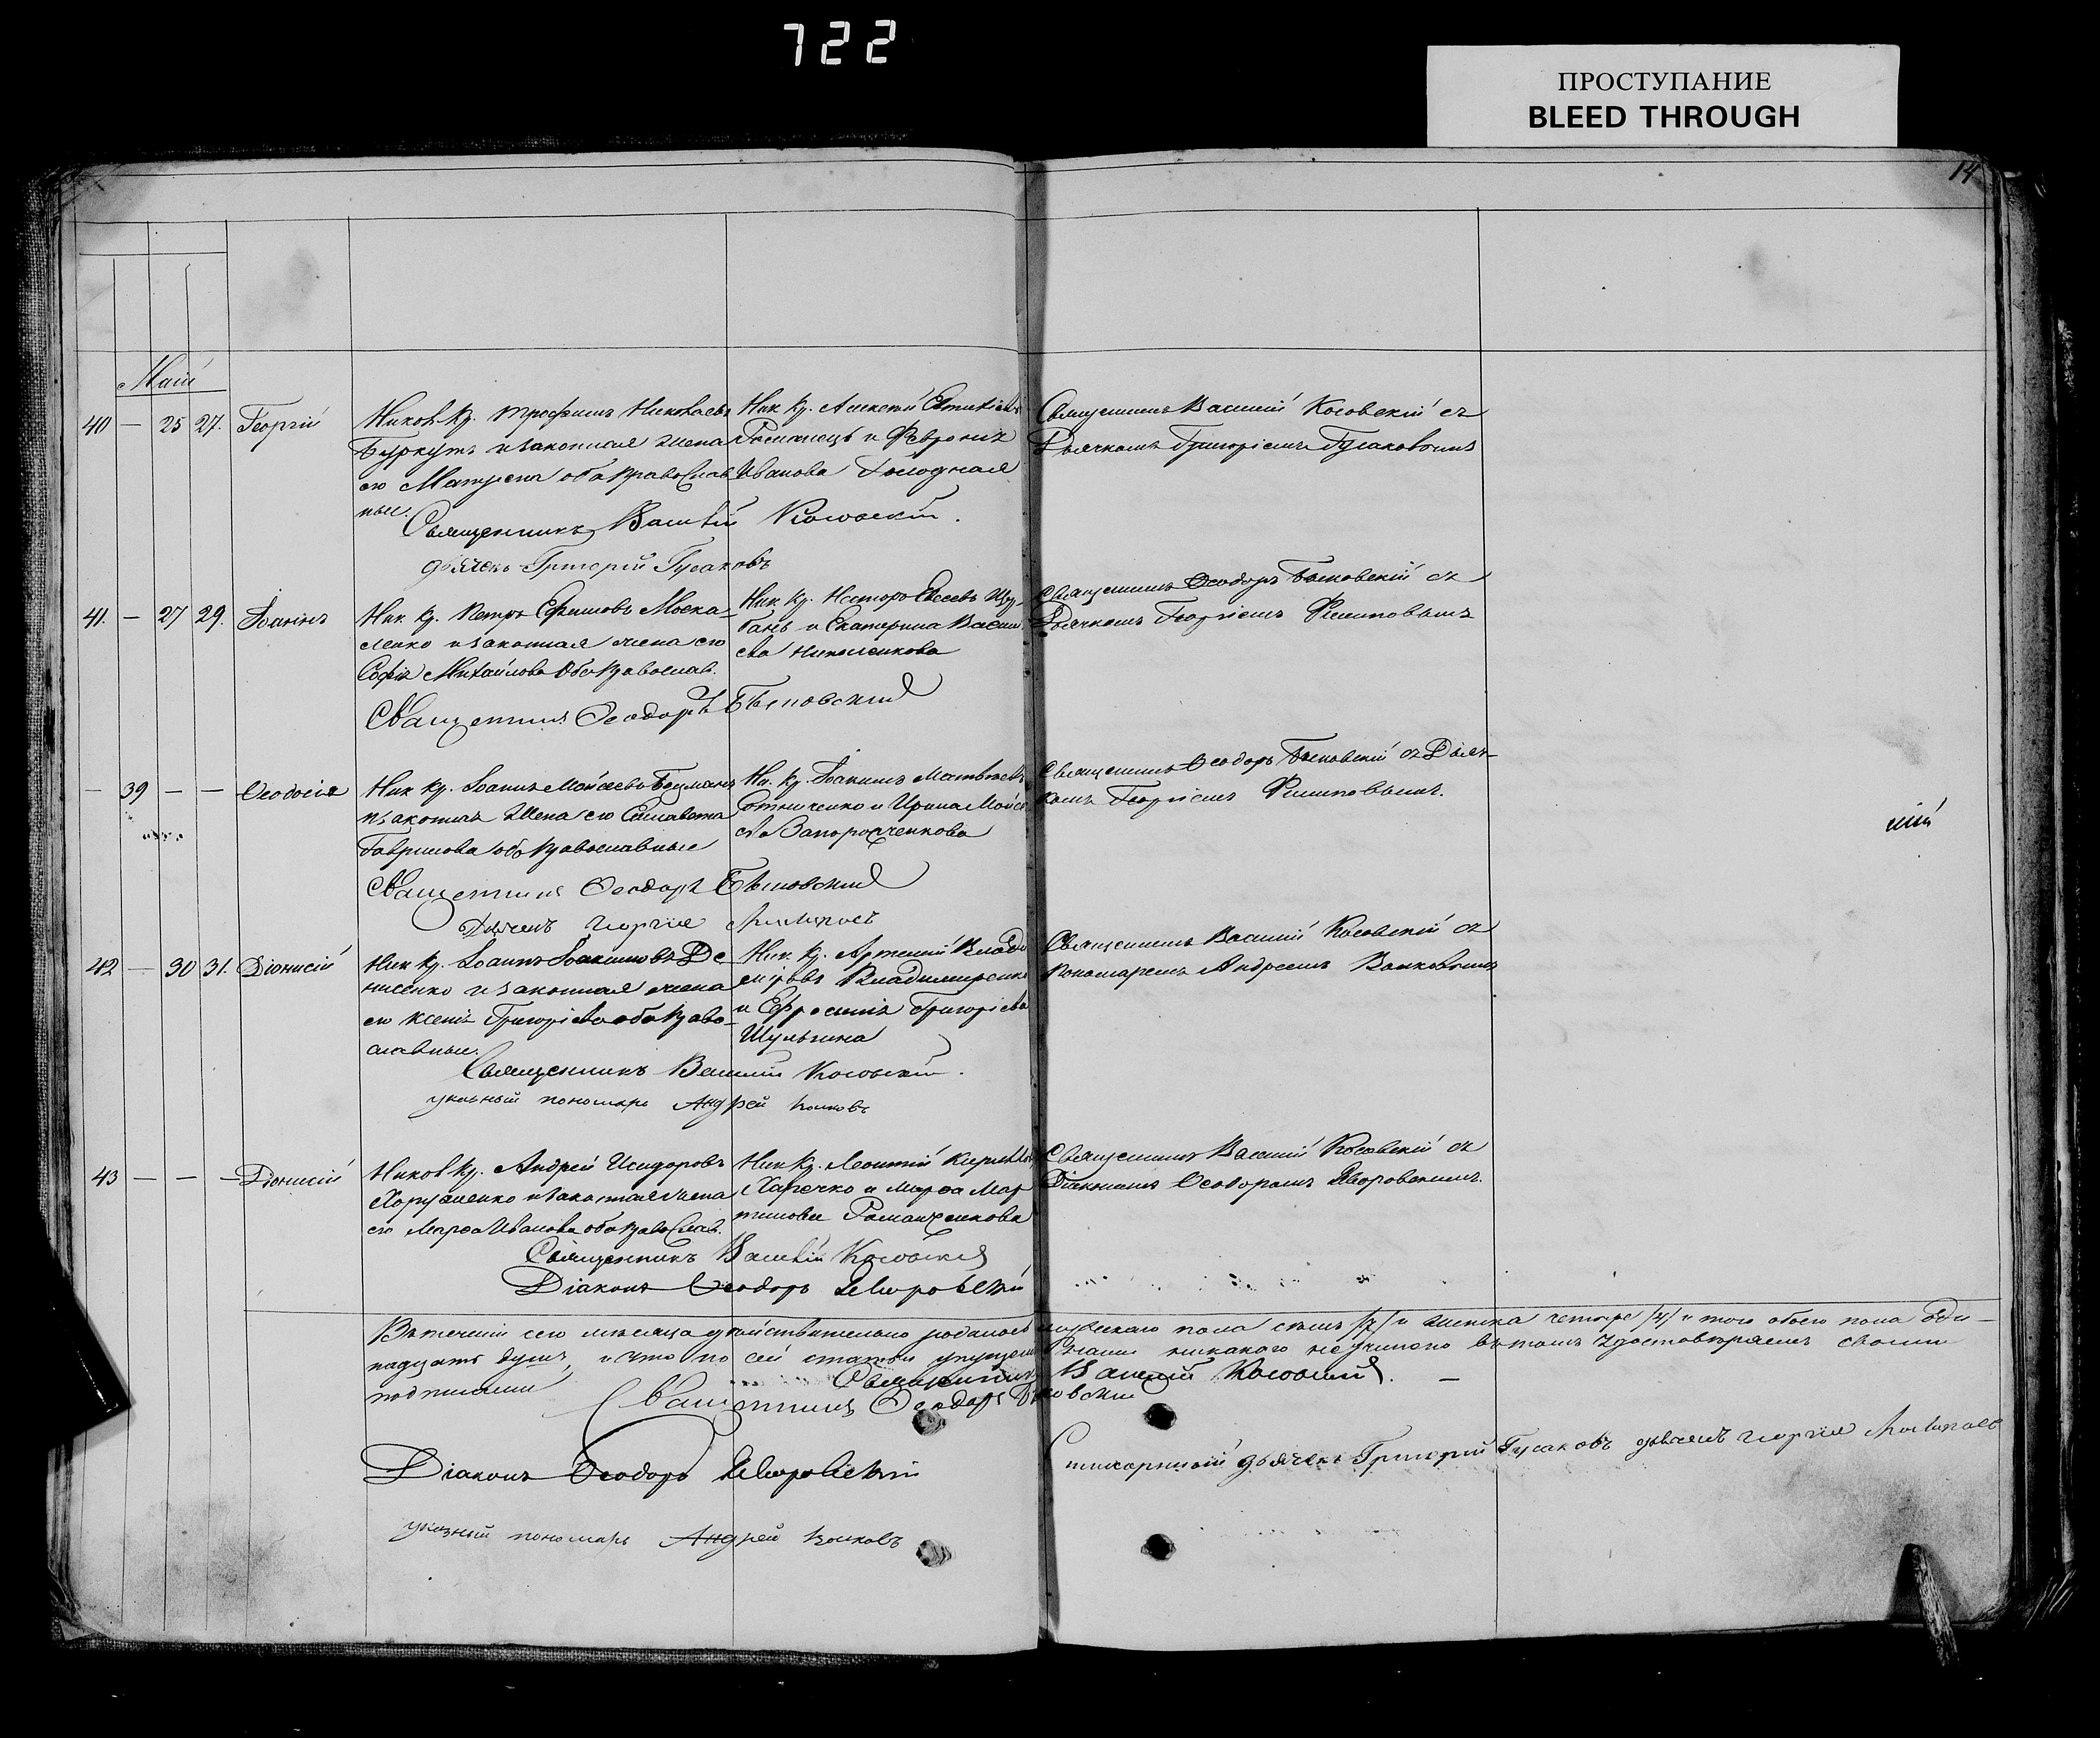 722
ПРОСТУПАНИЕ
BLEED THROUGH
14
Маій
40 — 25 27. Георгій
Ников. Кр. Трофимъ Николаевъ
Буркутъ и законная жена
его Матрена оба православ
ные.
Ник. Кр. Алексѣй
Романецъ и Февронія
Иванова Голодная
Священникъ Василій Косовскій съ
Дьячкомъ Григоріемъ Гусаковымъ
Священникъ Василій Косовскій.
дьячекъ Григорій Гусаковъ
41. — 27 29. Іоаннъ
Ник. Кр. Петръ Ефимовъ Моска
ленко и законная жена его
Софія Михайлова оба православ.
Ник. Кр. Несторъ Евсеевъ
и Екатерина Васил
ева
Священникъ Ѳеодоръ Бѣлковскій съ
Дьячкомъ Георгіемъ Филиповымъ
Священникъ Ѳеодоръ
— 39 — — Ѳеодосія
Ник. Кр. Іоаннъ Мойсеевъ
и законная жена его Елисавета
Гаврилова оба православные
Ник. Кр. Іоакимъ Матвѣевъ
Сотниченко и Ирина Мойсе
ева Запорожченкова
Священникъ Ѳеодоръ Бѣлковскій съ Дьяч-
комъ Георгіемъ Филиповымъ.
Священникъ Ѳеодоръ
Дьячекъ Георгій
42 — 30 31. Діонисій
Ник. Кр. Іоаннъ Іоакимовъ Де
нисенко и законная жена
его Ксенія Григоріева оба право
славные.
Ник. Кр. Артемій Влади
міровъ Владимиренко
и Ефросинія Григоріева
Шульгина
Священникъ Василій Косовскій съ
Пономаремъ Андреемъ Волковымъ
Священникъ Василій Косовскій.
указный пономарь Андрей Волковъ
43 — — — Діонисій
Ников. Кр. Андрей Исидоровъ
Харченко и законная жена
его Марѳа Иванова оба православ.
Ник. Кр. Леонтій Кирилловъ
Харечко и Марѳа Мар
тинова Романченкова
Священникъ Василій Косовскій съ
Діакономъ Ѳеодоромъ Яворовскимъ.
Священникъ Василій Косовскій
Діаконъ Ѳеодоръ Яворовскій
Въ теченіи сего мѣсяца дѣйствительно родилось мужескаго пола семъ /7/ и женска четыре /4/ и того обоего пола оди-
надцать душъ, и что по сей статьи упущенія нами никакого не учинено въ томъ удостовѣряемъ своими
подписами
Священникъ Василій Косовскій. —
Священникъ Ѳеодоръ
Діаконъ Ѳеодоръ Яворовскій
Стихарный дьячекъ Григорій Гусаковъ дьячекъ Георгій
указный пономарь Андрей Волковъ